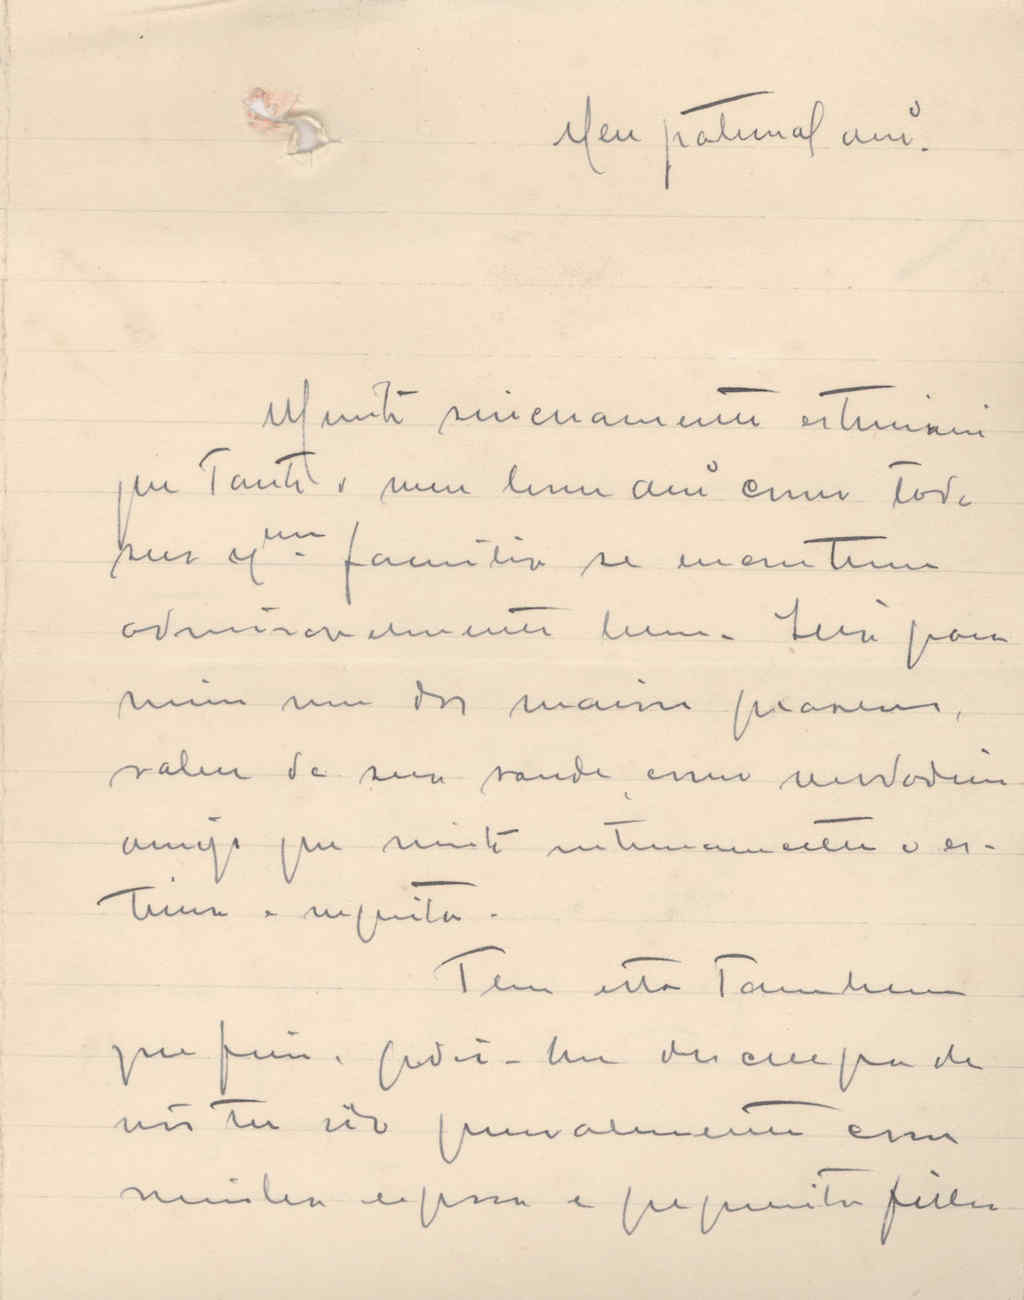 Meu paternal amº.
Muito sinceramente estimarei
que tanto o meu bom amº como toda
sua Exma. familia se encontrem
admiravelmente bem. Será para
mim um dos maiores prazeres,
saber da sua saude, como verdadeiro
amigo que muito intimamente o es-
tima e respeita.
Tem esta tambem
por fim, pedir-lhe desculpa de
não ter ido pessoalmente com
minha esposa e pequenita filha